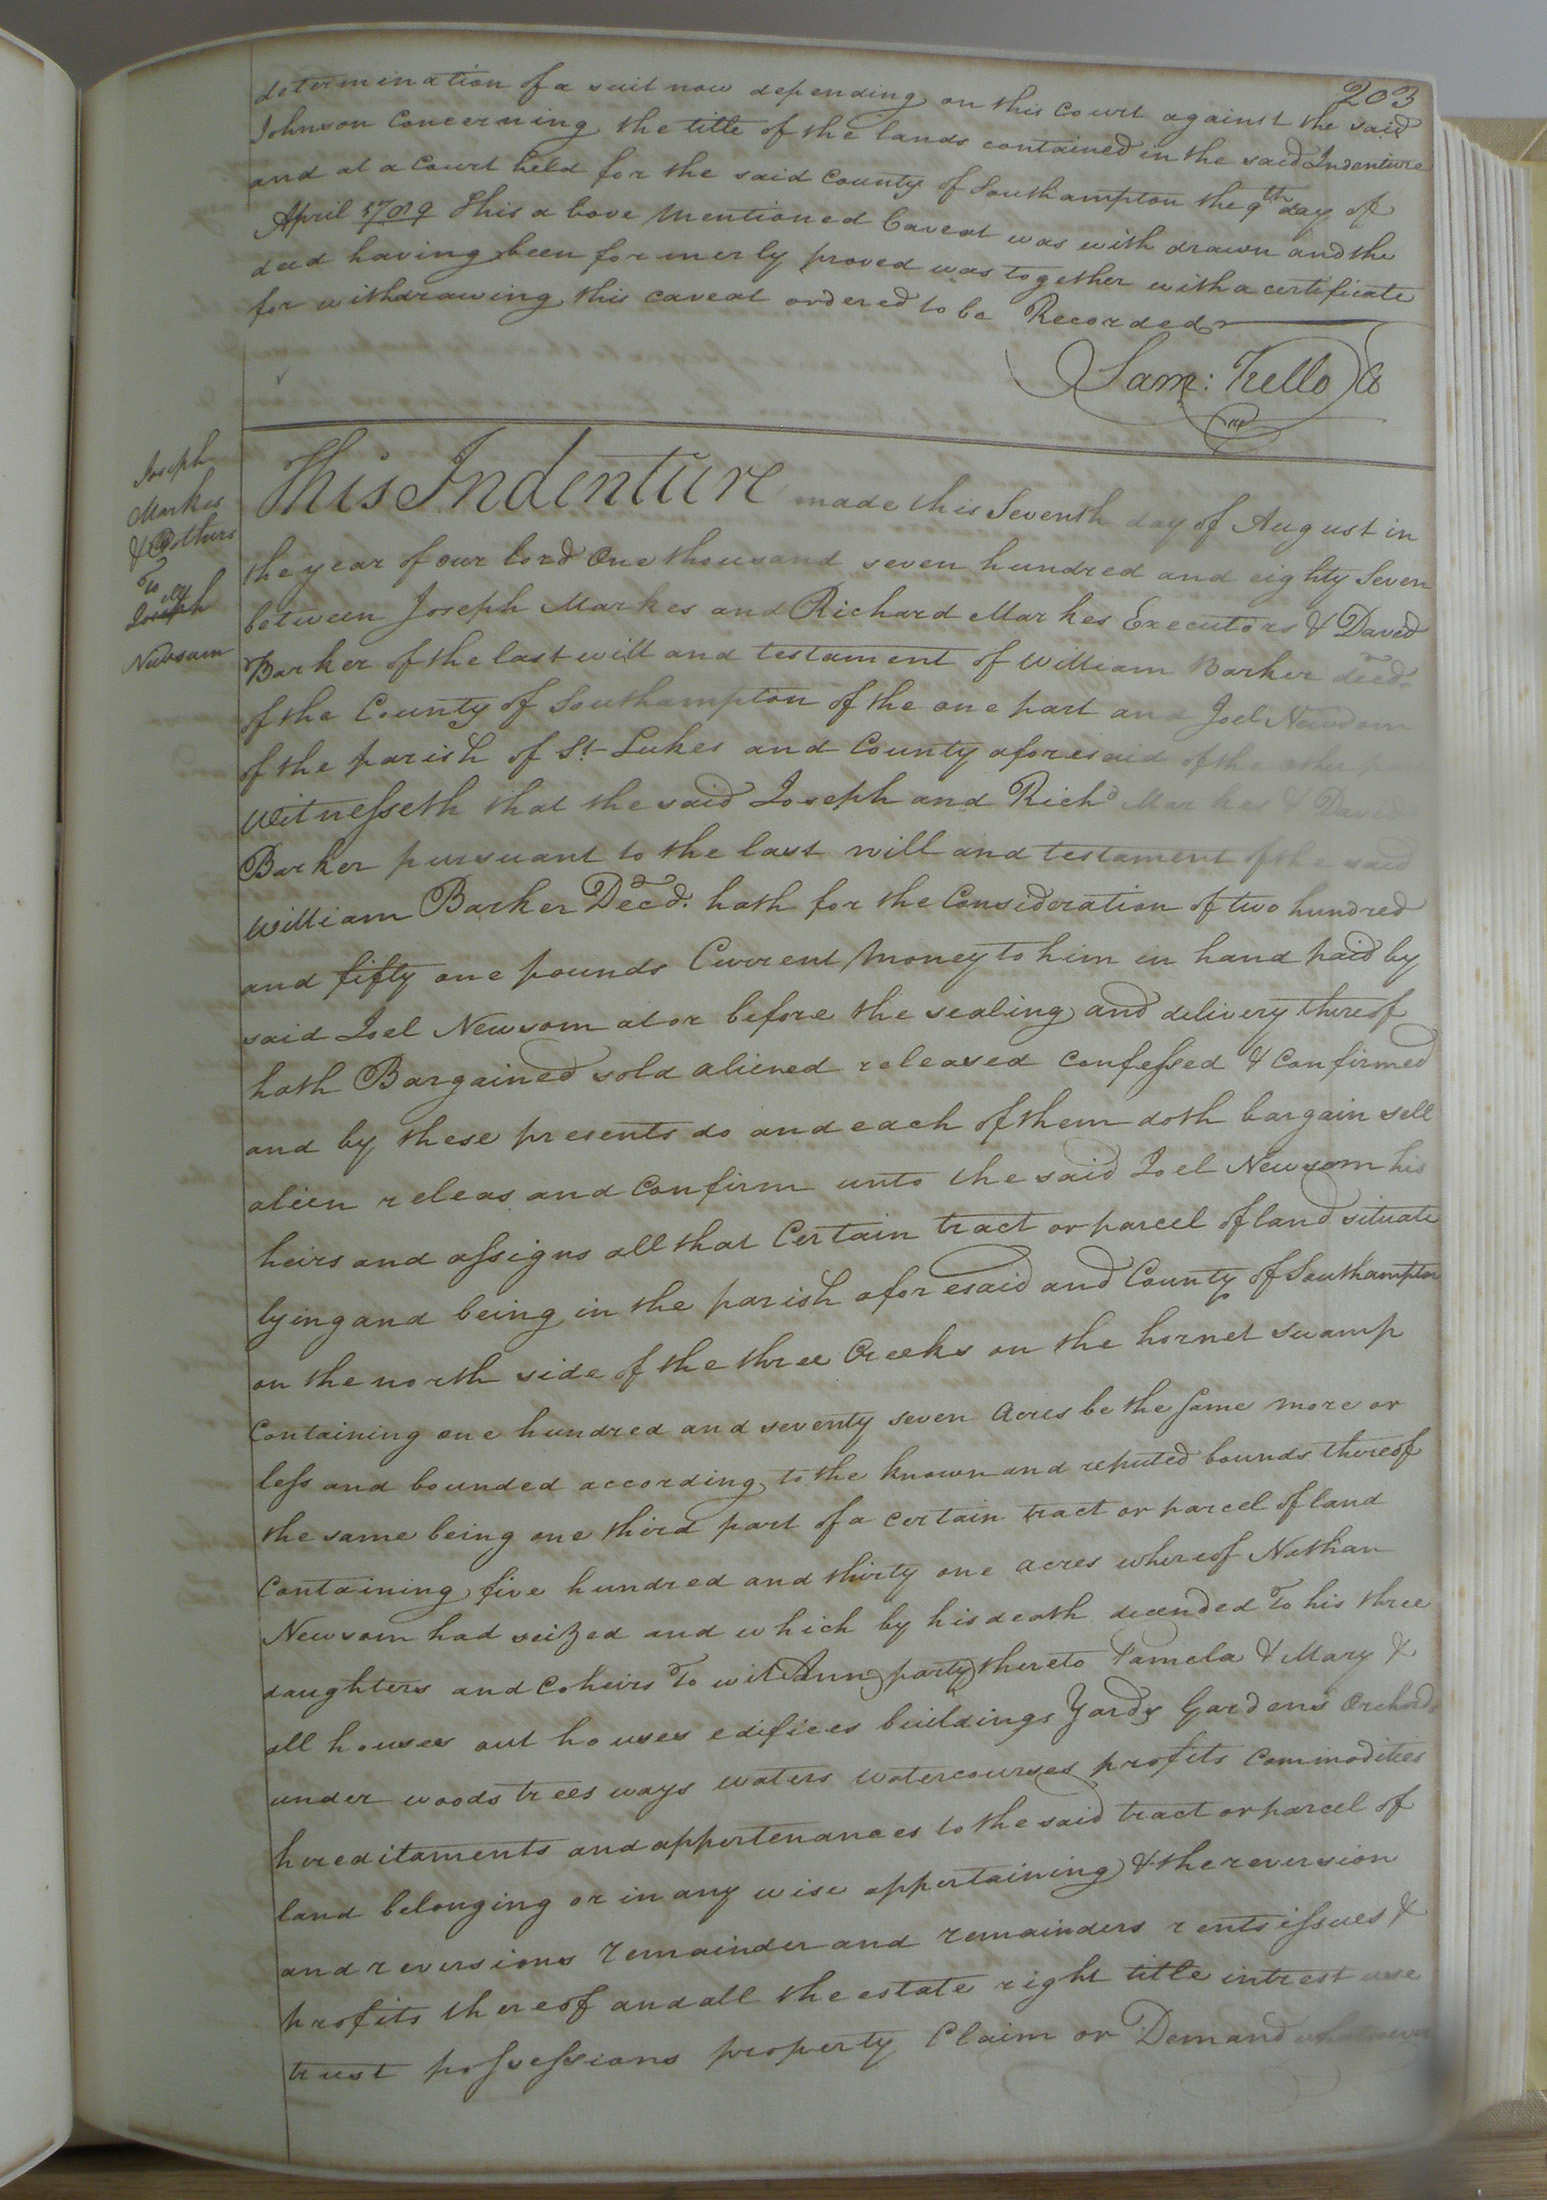 203
determination of a suit now depending on this Court against the said
Johnson Concerning the title of the lands contained in the said Indenture
and at a Court held for the said County of Southampton the 9th day of
April 1789 This above mentioned Caveat was with drawn and the
deed having been formerly proved was together with a certificate
for withdrawing this caveat ordered to be Recorded
Sam: Kello Cl
Joseph
Markes
& Others
To
Joseph
Newsam
This Indenture made this Seventh day of August in
the year of our lord One thousand seven hundred and eighty Seven
between Joseph Markes and Richard Markes Executors & David
Barker of the last will and testament of William Barker deced.
of the County of Southampton of the one part and Joel Newsom
of the parish of St. Lukes and County aforesaid of the other
Witnesseth that the said Joseph and Richd Markes & David
Barker pursuant to the last will and testament of the said
William Barker Decd. hath for the Consideration of two hundred
and fifty one pounds Current Money to him in hand paid by
said Joel Newsom at or before the sealing and delivery thereof
hath Bargained sold aliened released confessed & Confirmed
and by these presents do and each of them doth bargain sell
alien releas and Confirm unto the said Joel Newsom his
heirs and assigns all that Certain tract or parcel of land situate
lying and being in the parish aforesaid and County of Southampton
on the north side of the three Creeks on the hornet swamp
Containing one hundred and seventy seven Acres be the same more or
less and bounded according to the known and reputed bounds thereof
the same being one third part of a certain tract or parcel of land
Containing five hundred and thirty one acres whereof Nathan
Newsom had seized and which by his death decended To his three
daughters and Coheirs To wit Ann party thereto Pamela & Mary &
all houses out houses edifices buildings Yards Gardens Orchards
under woods trees ways waters watercourses profits Commodities
hereditaments and appertenances to the said tract or parcel of
land belonging or in any wise appertaining & the reversion
and reversions remainder and remainders rents issues &
profits thereof and all the estate right title intrest use
trust possessions property Claim or Demand whatsoever